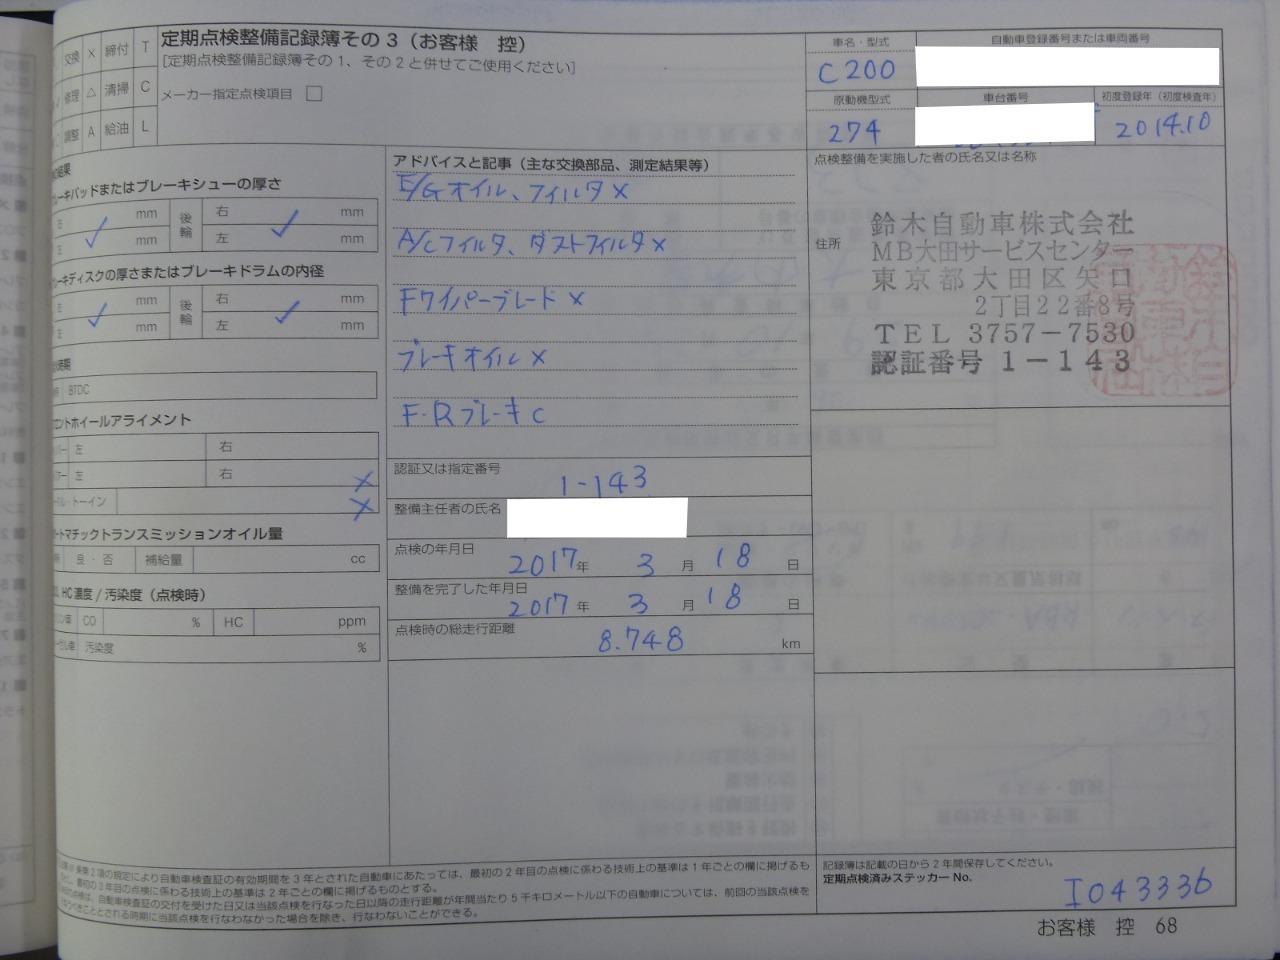 交換 × 締付 T
修理 △ 清掃 C
調整 A 給油 L
定期点検整備記録簿その3（お客様 控）
[定期点検整備記録簿その1、その2と併せてご使用ください]
メーカー指定点検項目 □
車名・型式
C200
自動車登録番号または車両番号
原動機型式
274
車台番号
初度登録年（初度検査年）
2014.10
結果
ーキパッドまたはブレーキシューの厚さ
右 mm 後輪 右 mm
左 mm 左 mm
ーキディスクの厚さまたはブレーキドラムの内径
右 mm 後輪 右 mm
左 mm 左 mm
BTDC
ロントホイールアライメント
左 右
左 右 ×
トーイン ×
ートマチックトランスミッションオイル量
良・否 補給量 cc
HC濃度/汚染度（点検時）
CO % HC ppm
汚染度 %
アドバイスと記事（主な交換部品、測定結果等）
E/Gオイル、フィルタ×
A/Cフィルタ、ダストフィルタ×
Fワイパーブレード×
ブレーキオイル×
F・Rブレーキ C
認証又は指定番号
1-143
整備主任者の氏名
点検の年月日
2017年 3月 18日
整備を完了した年月日
2017年 3月 18日
点検時の総走行距離
8.748 km
点検整備を実施した者の氏名又は名称
住所
鈴木自動車株式会社
MB大田サービスセンター
東京都大田区矢口
2丁目22番8号
TEL 3757-7530
認証番号 1-143
第2項の規定により自動車検査証の有効期間を3年とされた自動車にあたっては、最初の2年目の点検に係わる技術上の基準は1年ごとの欄に掲げるも
最初の3年目の点検に係わる技術上の基準は2年ごとの欄に掲げるものとする。
点検は、自動車検査証の交付を受けた日又は当該点検を行なった日以降の走行距離が年間当たり5千キロメートル以下の自動車については、前回の当該点検を
なうべきこととされる時期に当該点検を行なわなかった場合を除き、行なわないことができる。
記録簿は記載の日から2年間保存してください。
定期点検済みステッカー No.
I043336
お客様 控 68